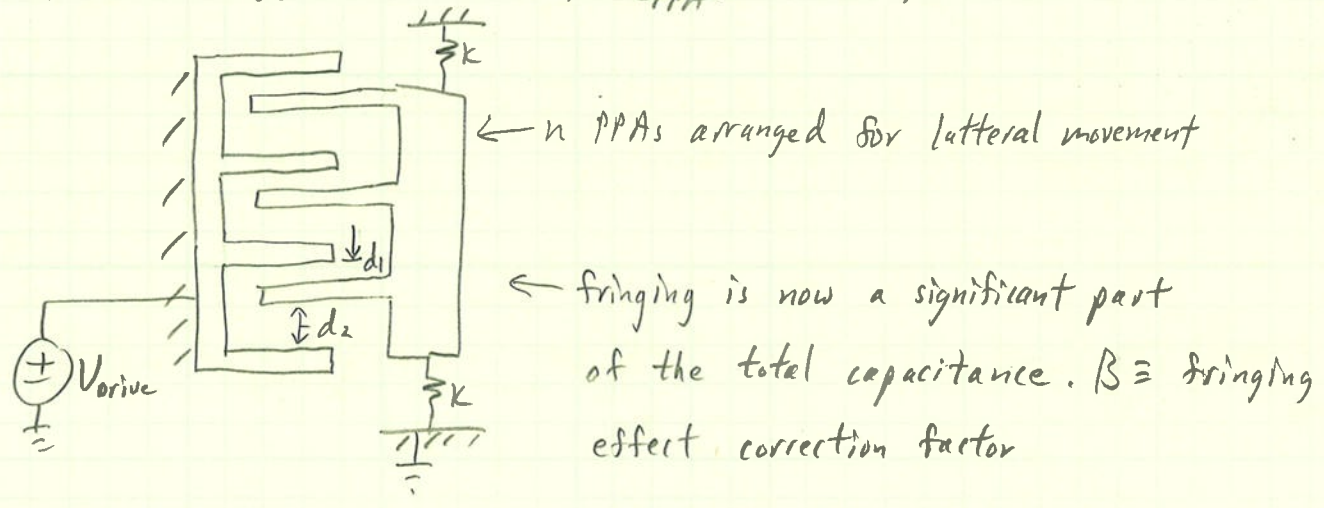 PPA
K
← n PPAs arranged for latteral movement
d1
← fringing is now a significant part
d2
of the total capacitance. β ≡ fringing
+
-
Vdrive
K
effect correction factor